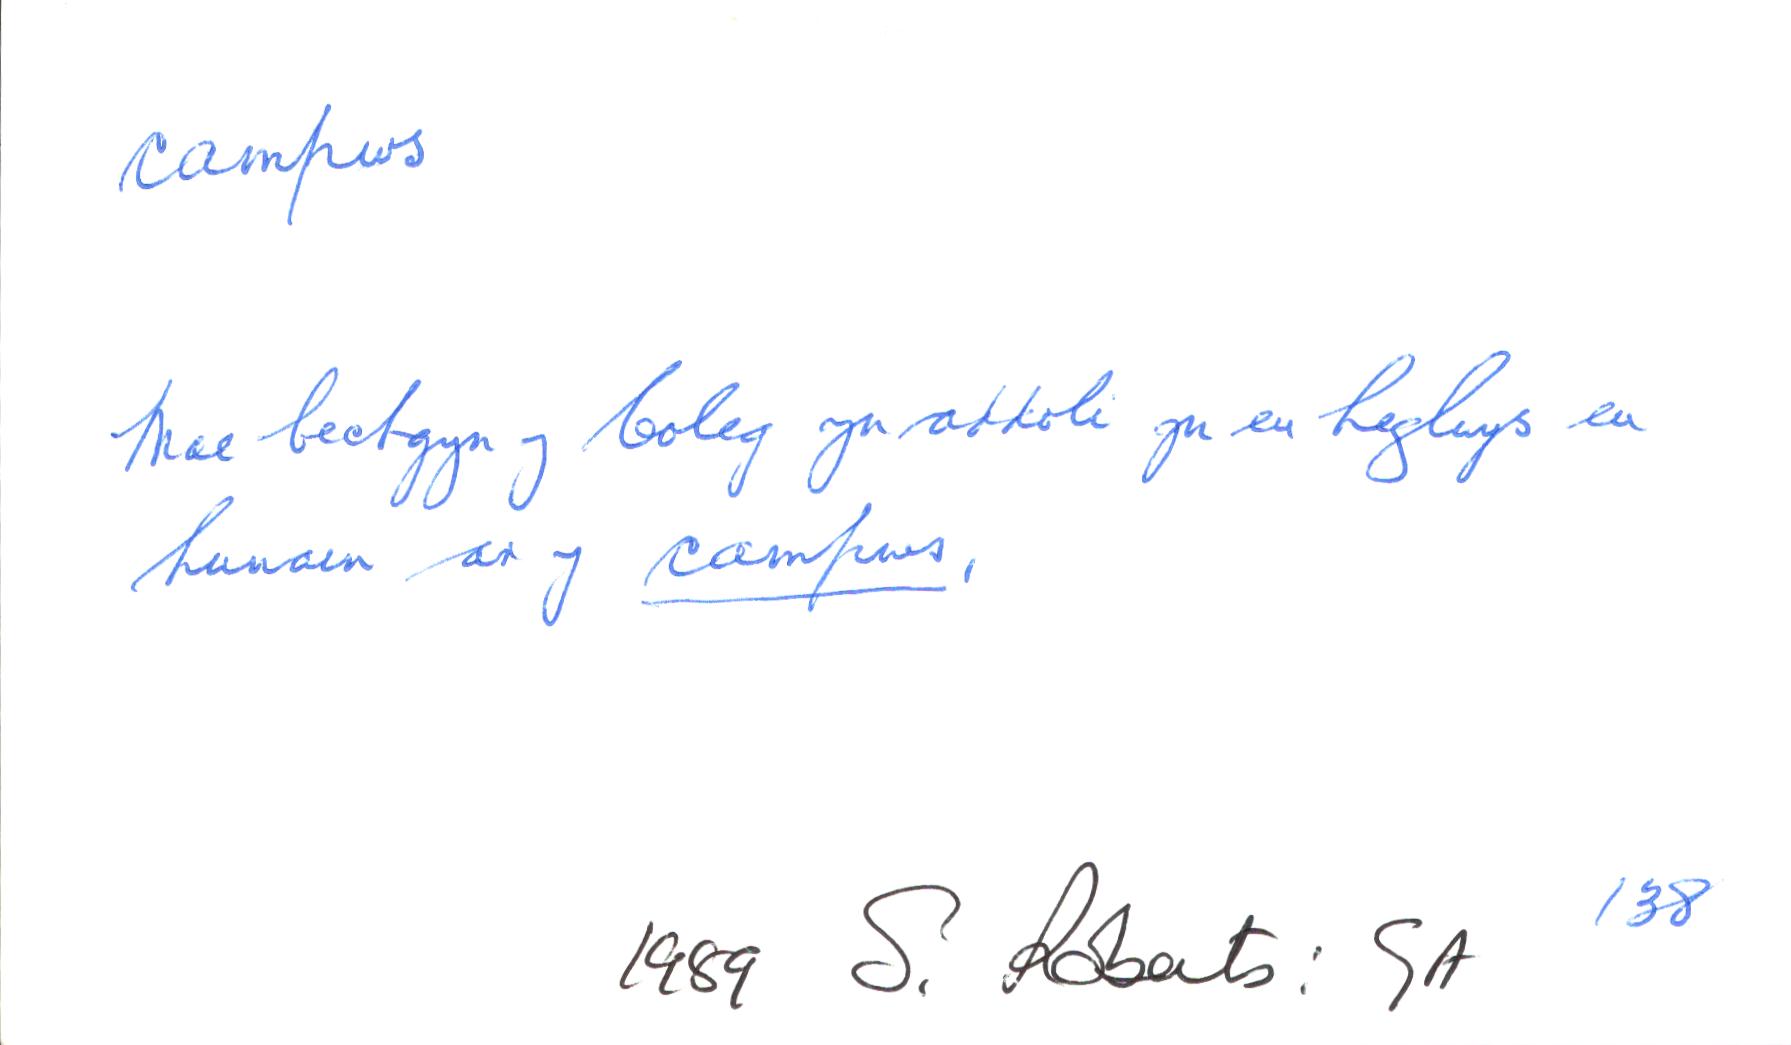 campws
Mae bechgyn y Coleg yn addoli yn eu heglwys eu
hunain ar y campws.
1989 S. Roberts: GA 138